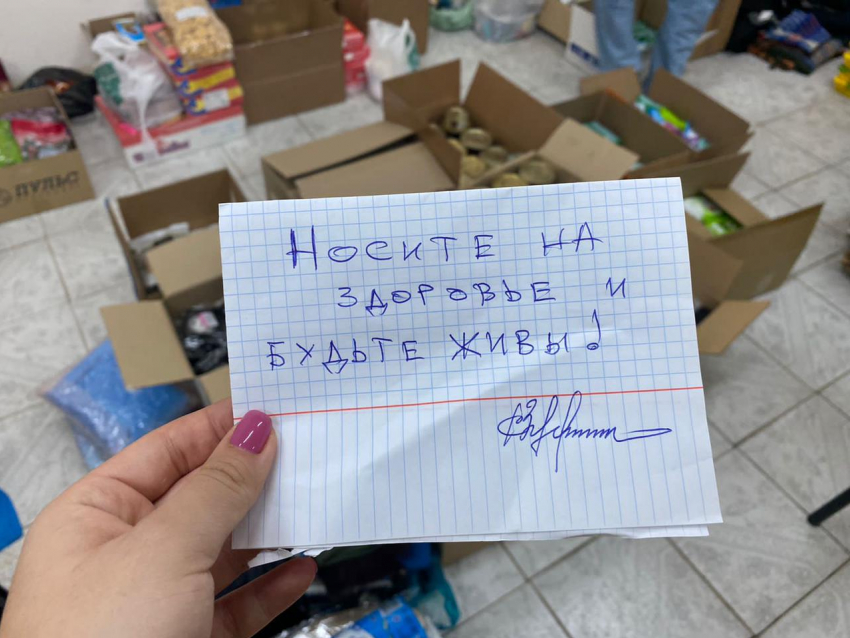 ПУЛЬС
НОСИТЕ НА
ЗДОРОВЬЕ И
БУДЬТЕ ЖИВЫ!